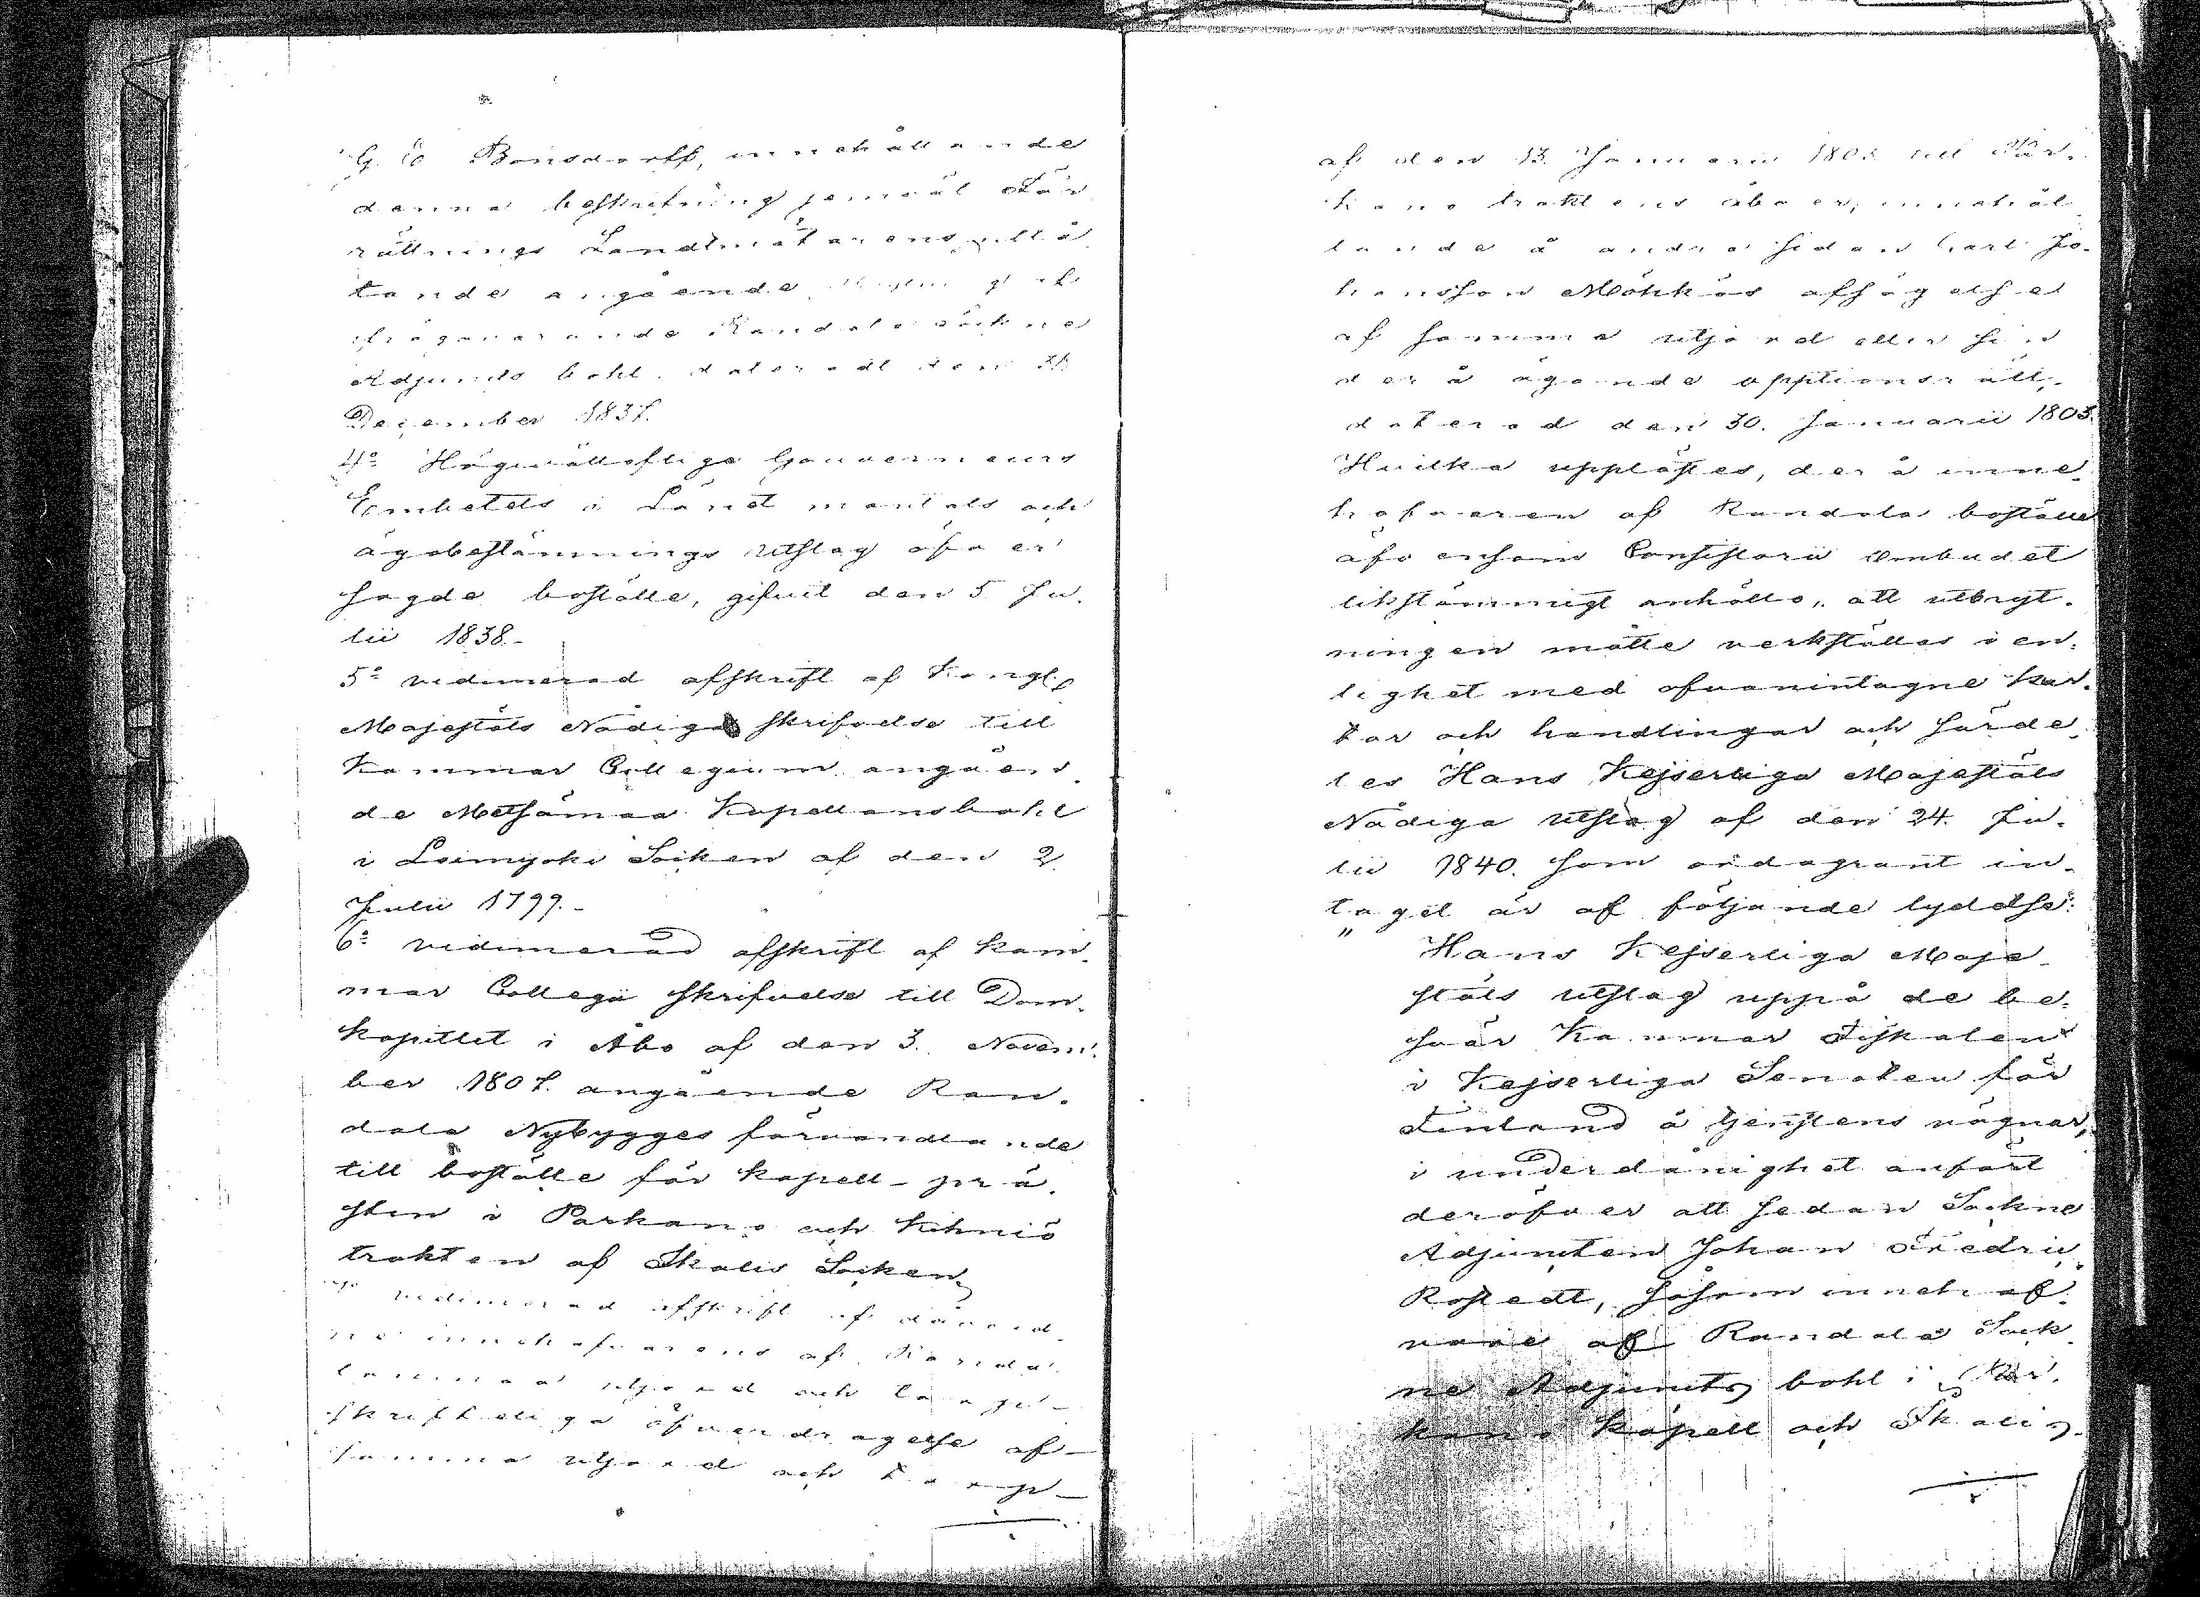 G. E. Bonsdorff, innehållande
denna beskrifning jemväl För
rättnings Landtmätarens utlå
tande angående af
ifrågavarande Randala sockne
Adjunkts bohl, dateradt den 21
December 1837.
4:o Högvälloflige Gouverneurs
Embetets i Länet mantals och
ägobestämnings utslag öfver
sagde boställe, gifvet den 5 Ju-
lii 1838.-
5:o vidimerad afskrift af Kongl.
Majestäts Nådiga skrifvelse till
Kammar Collegium angåen-
de Metsämaa Kapellansbohl
i Loimijoki Socken af den 2
Julii 1799.-
6:o vidimerad afskrift af Kam-
mar Collegii skrifvelse till Dom-
kapitlet i Åbo af den 3. Novem-
ber 1807. angående Ran-
dala Nybygges förvandlande
till boställe för kapell-prä-
sten i Parkano och Kihniö
trakten af Ikalis Socken,
vidimerad afskrift af dåvarand-
ne innehafvarens af Randa
utjord och torp-
skrifteliga öfverdragelse af-
samma utjord och torp-
af den 13. Januarii 1803 till Par-
kano traktens åboer, innehål-
lande å andra sidan Carl Jo-
hansson Möhkäs afsägelse
af samma utjord eller sin
derå ägande opptionsrätt,
daterad den 30. Januarii 1803.
Hvilka upplästes, derå inne-
hafvaren af Randala boställe
äfvensom Consistorii ombudet
likstämmigt anhöllo, att utbryt-
ningen måtte verkställas i en-
lighet med ofvanintagne kar-
tor och handlingar och särde-
les Hans Kejserliga Majestäts
Nådiga utslag af den 24. Ju-
lii 1840. som ordagrant in-
taget är af följande lydelse:
" Hans Kejserliga Maje-
stäts utslag uppå de be-
svär Kammar Fiskalen
i Kejserliga Senaten för
Finland å tjenstens vägnar,
i underdånighet anfört
deröfver att sedan Sockne
Adjuncten Johan Fredric
Rostedt, såsom innehaf-
vare af Randala Sock-
ne Adjuncts bohl i Par-
kano kapell och Ikalis